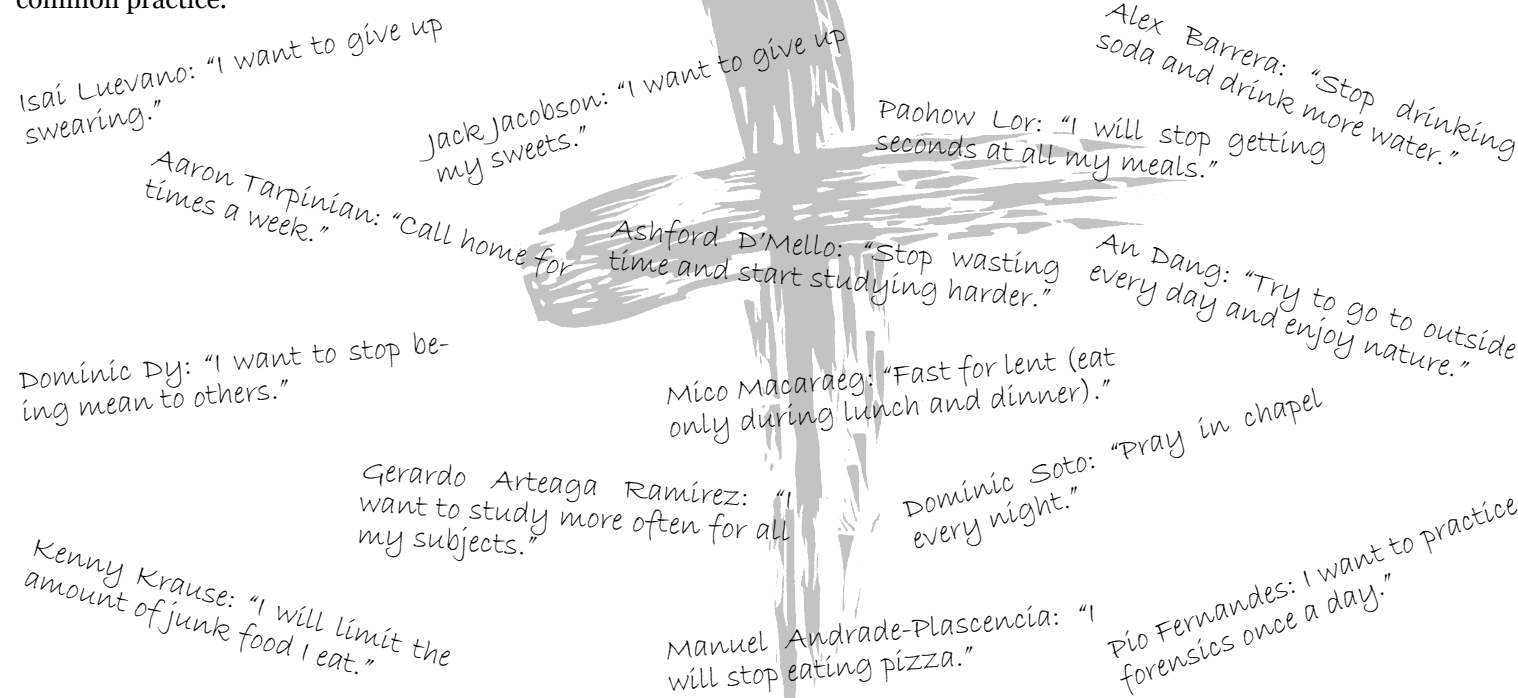 common practice.
Isaí Luevano: “I want to give up
swearing.”
Jack Jacobson: “I want to give up
my sweets.”
Alex Barrera: “Stop drinking
soda and drink more water.”
Paohow Lor: “I will stop getting
seconds at all my meals.”
Aaron Tarpinian: “Call home for
times a week.”
Ashford D’Mello: “Stop wasting
time and start studying harder.”
An Dang: “Try to go to outside
every day and enjoy nature.”
Dominic Dy: “I want to stop be-
ing mean to others.”
Mico Macaraeg: “Fast for lent (eat
only during lunch and dinner).”
Gerardo Arteaga Ramírez: “I
want to study more often for all
my subjects.”
Dominic Soto: “Pray in chapel
every night.”
Kenny Krause: “I will limit the
amount of junk food I eat.”
Manuel Andrade-Plascencia: “I
will stop eating pizza.”
Pio Fernandes: I want to practice
forensics once a day.”